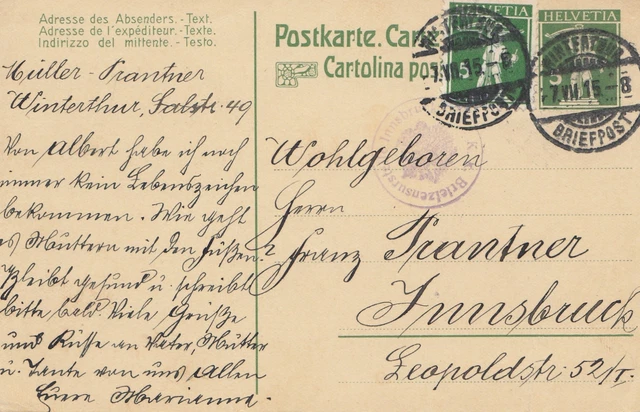 Adresse des Absenders. - Text.
Adresse de l'expéditeur. - Texte.
Indirizzo del mittente. - Testo.
Müller-Prantner
Winterthur, Salstr. 49
Von Albert habe ich noch
immer kein Lebenszeichen
bekommen. Wie geht
es Muttern mit den Füßen?
Bleibt gesund u. schreibt
bitte bald. Viele Grüße
und Küsse an Vater, Mutter
u. Tante von uns Allen
Eure Marianne.
Postkarte. Car
Cartolina pos
HELVETIA
5
HELVETIA
5
WINTERTHUR
7.VII.15.-8
BRIEFPOST
WINTERTHUR
7.VII.15.-8
BRIEFPOST
Wohlgeboren
Herrn
Franz Prantner
Innsbruck
Leopoldstr. 52/I.